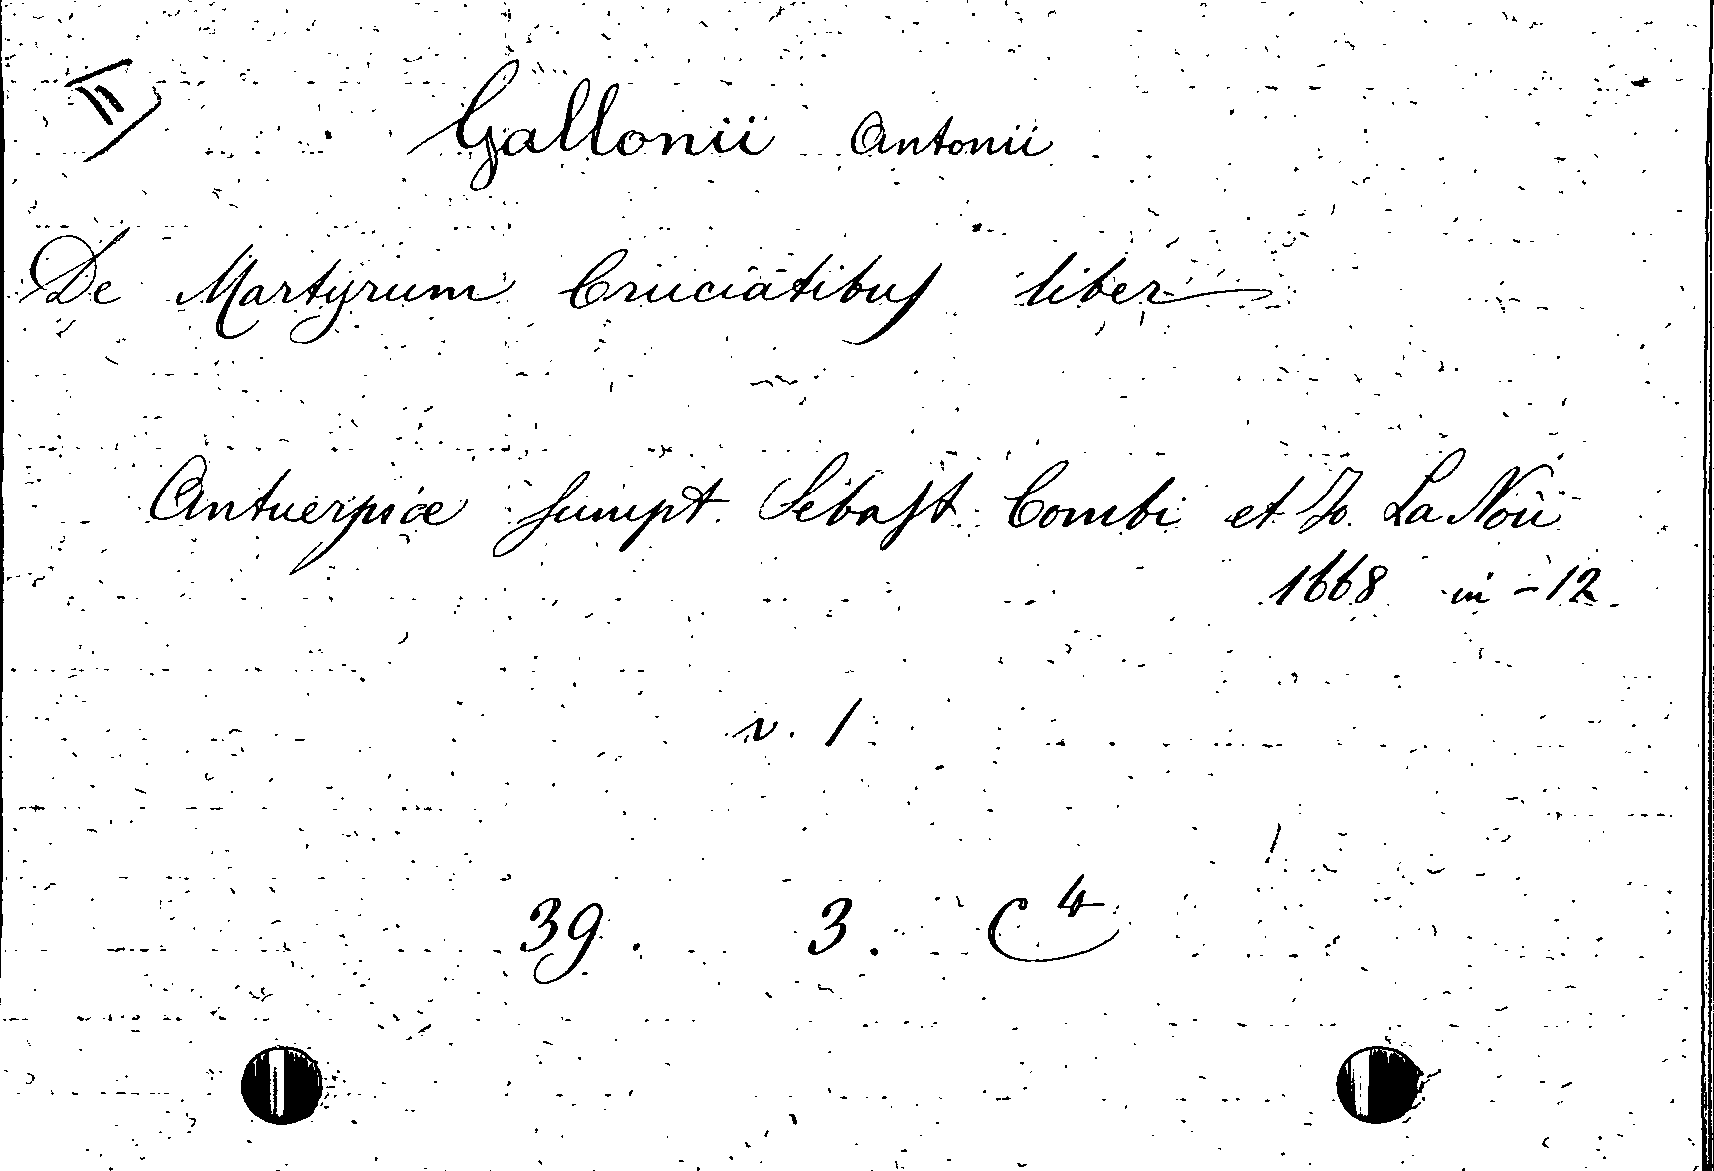 II
Gallonii Antonii
De Martyrum Cruciatibus liber
Antuerpiæ sumpt. Sebast. Combi et Jo. La Noü
1668 in-12.
v. 1
39. 3. C4